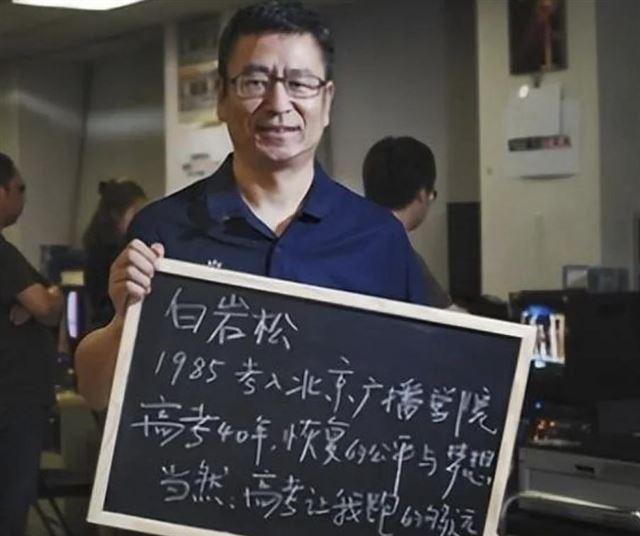 白岩松
1985考入北京广播学院
高考40年,恢复的公平与梦想
当然:高考让我跑的够远